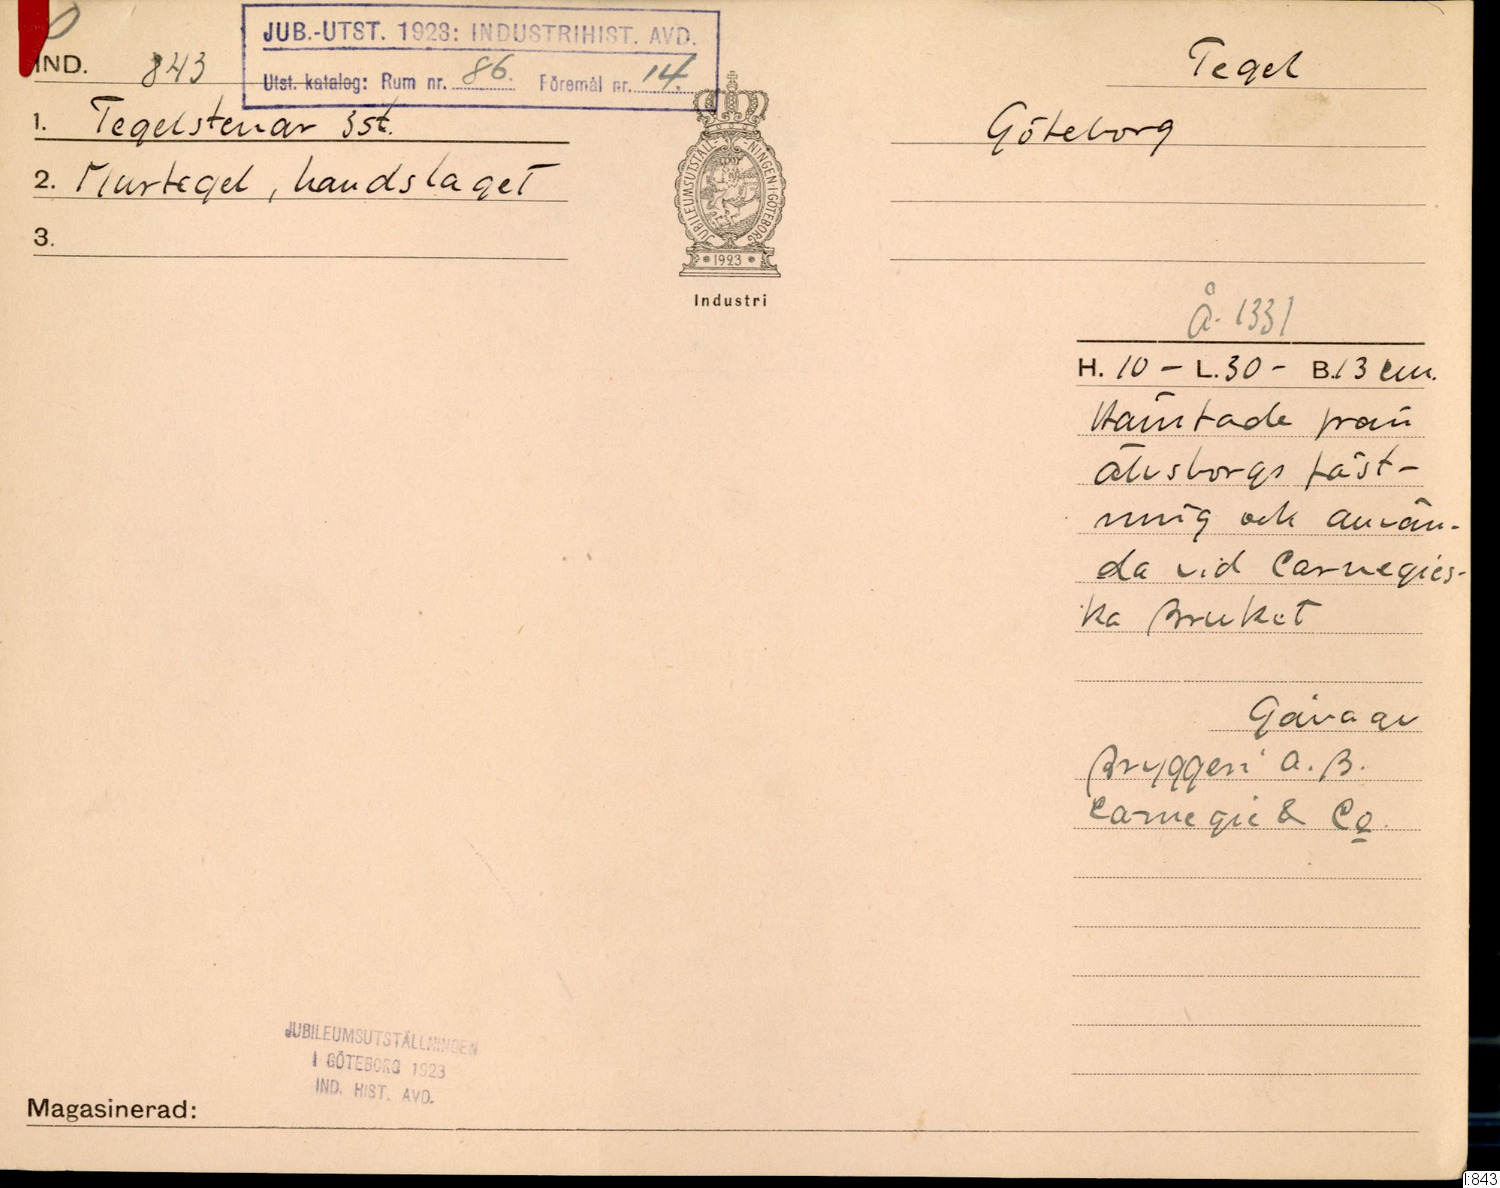 JUB.-UTST. 1923: INDUSTRIHIST. AVD.
Utst. katalog: Rum nr. 86. Föremål nr. 14.
IND. 843
Tegel
1. Tegelstenar 3st.
Göteborg
2. Murtegel, handslaget
3.
JUBILEUMSUTSTÄLLNINGEN I GÖTEBORG
1923
Industri
Å. 1331
H. 10 - L. 30 - B. 13 cm.
Hämtade från
Älvsborgs fäst-
ning och använ-
da vid Carnegies-
ka Bruket
Gåva av
Bryggeri A.B.
Carnegie & Co
JUBILEUMSUTSTÄLLNINGEN
I GÖTEBORG 1923
IND. HIST. AVD.
Magasinerad:
I:843